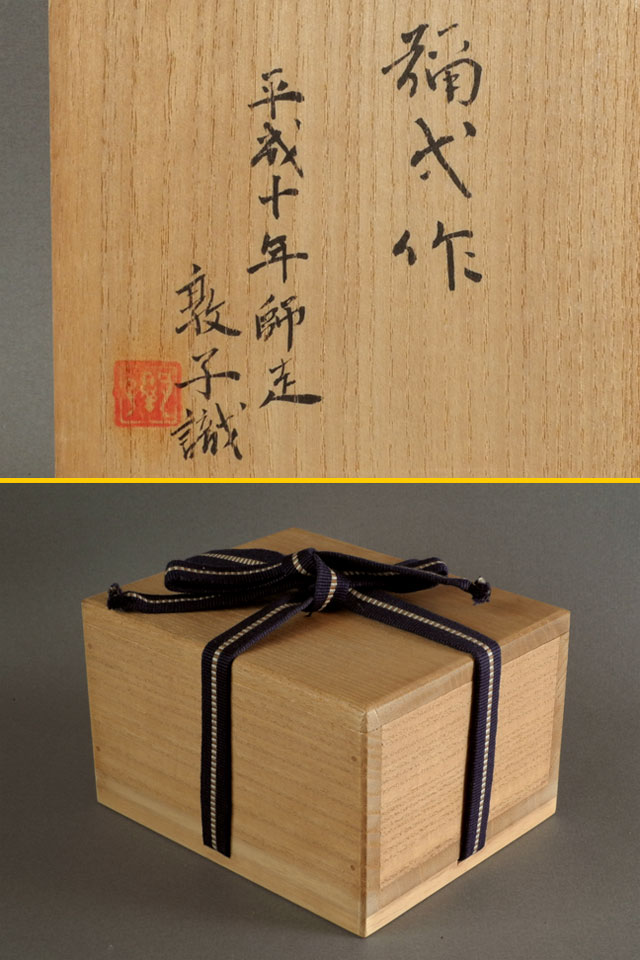 彌弌作
平成十年師走
敦子識